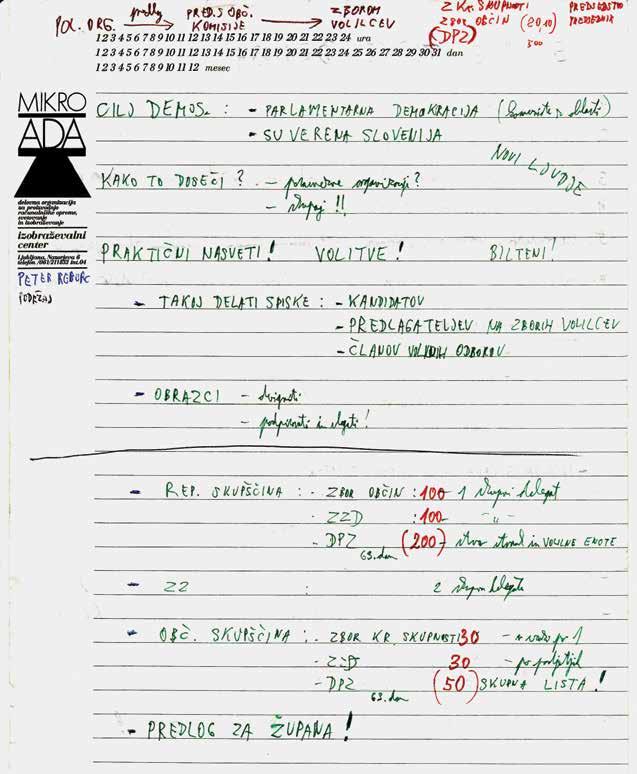 POL. ORG. → predlog → PREDS. OBČ. KOMISIJE → ZBOROM VOLILCEV
Z KR. SKUPNOSTI
ZBOR OBČIN (20,10)
(DPZ) 300
PREDSEDSTVO
PREDSEDNIK
1 2 3 4 5 6 7 8 9 10 11 12 13 14 15 16 17 18 19 20 21 22 23 24 ura
1 2 3 4 5 6 7 8 9 10 11 12 13 14 15 16 17 18 19 20 21 22 23 24 25 26 27 28 29 30 31 dan
1 2 3 4 5 6 7 8 9 10 11 12 mesec
MIKRO
ADA
delovna organizacija
za proizvodnjo
računalniške opreme,
svetovanje
in izobraževanje
izobraževalni
center
Ljubljana, Nazorjeva 6
PETER REBERC
CILJ DEMOSa : - PARLAMENTARNA DEMOKRACIJA
- SUVERENA SLOVENIJA
NOVI LJUDJE
KAKO TO DOSEČI ? - posamezne organizacije?
- skupaj !!
PRAKTIČNI NASVETI! VOLITVE! BILTENI!
- TAKOJ DELATI SPISKE : - KANDIDATOV
- PREDLAGATELJEV NA ZBORIH VOLILCEV
- ČLANOV VOLILNIH ODBOROV
- OBRAZCI - dvigniti
- podpisovati in
- REP. SKUPŠČINA : - ZBOR OBČIN : 100 - 1 skupni delegat
- ZZD : 100 - -"-
- DPZ (200) - in VOLILNE ENOTE
- ZZ : 2 skupna delegata
- OBČ. SKUPŠČINA : - ZBOR KR. SKUPNOSTI 30 - po 1
- ZZD 30 - po podjetjih
- DPZ (50) SKUPNA LISTA !
- PREDLOG ZA ŽUPANA !